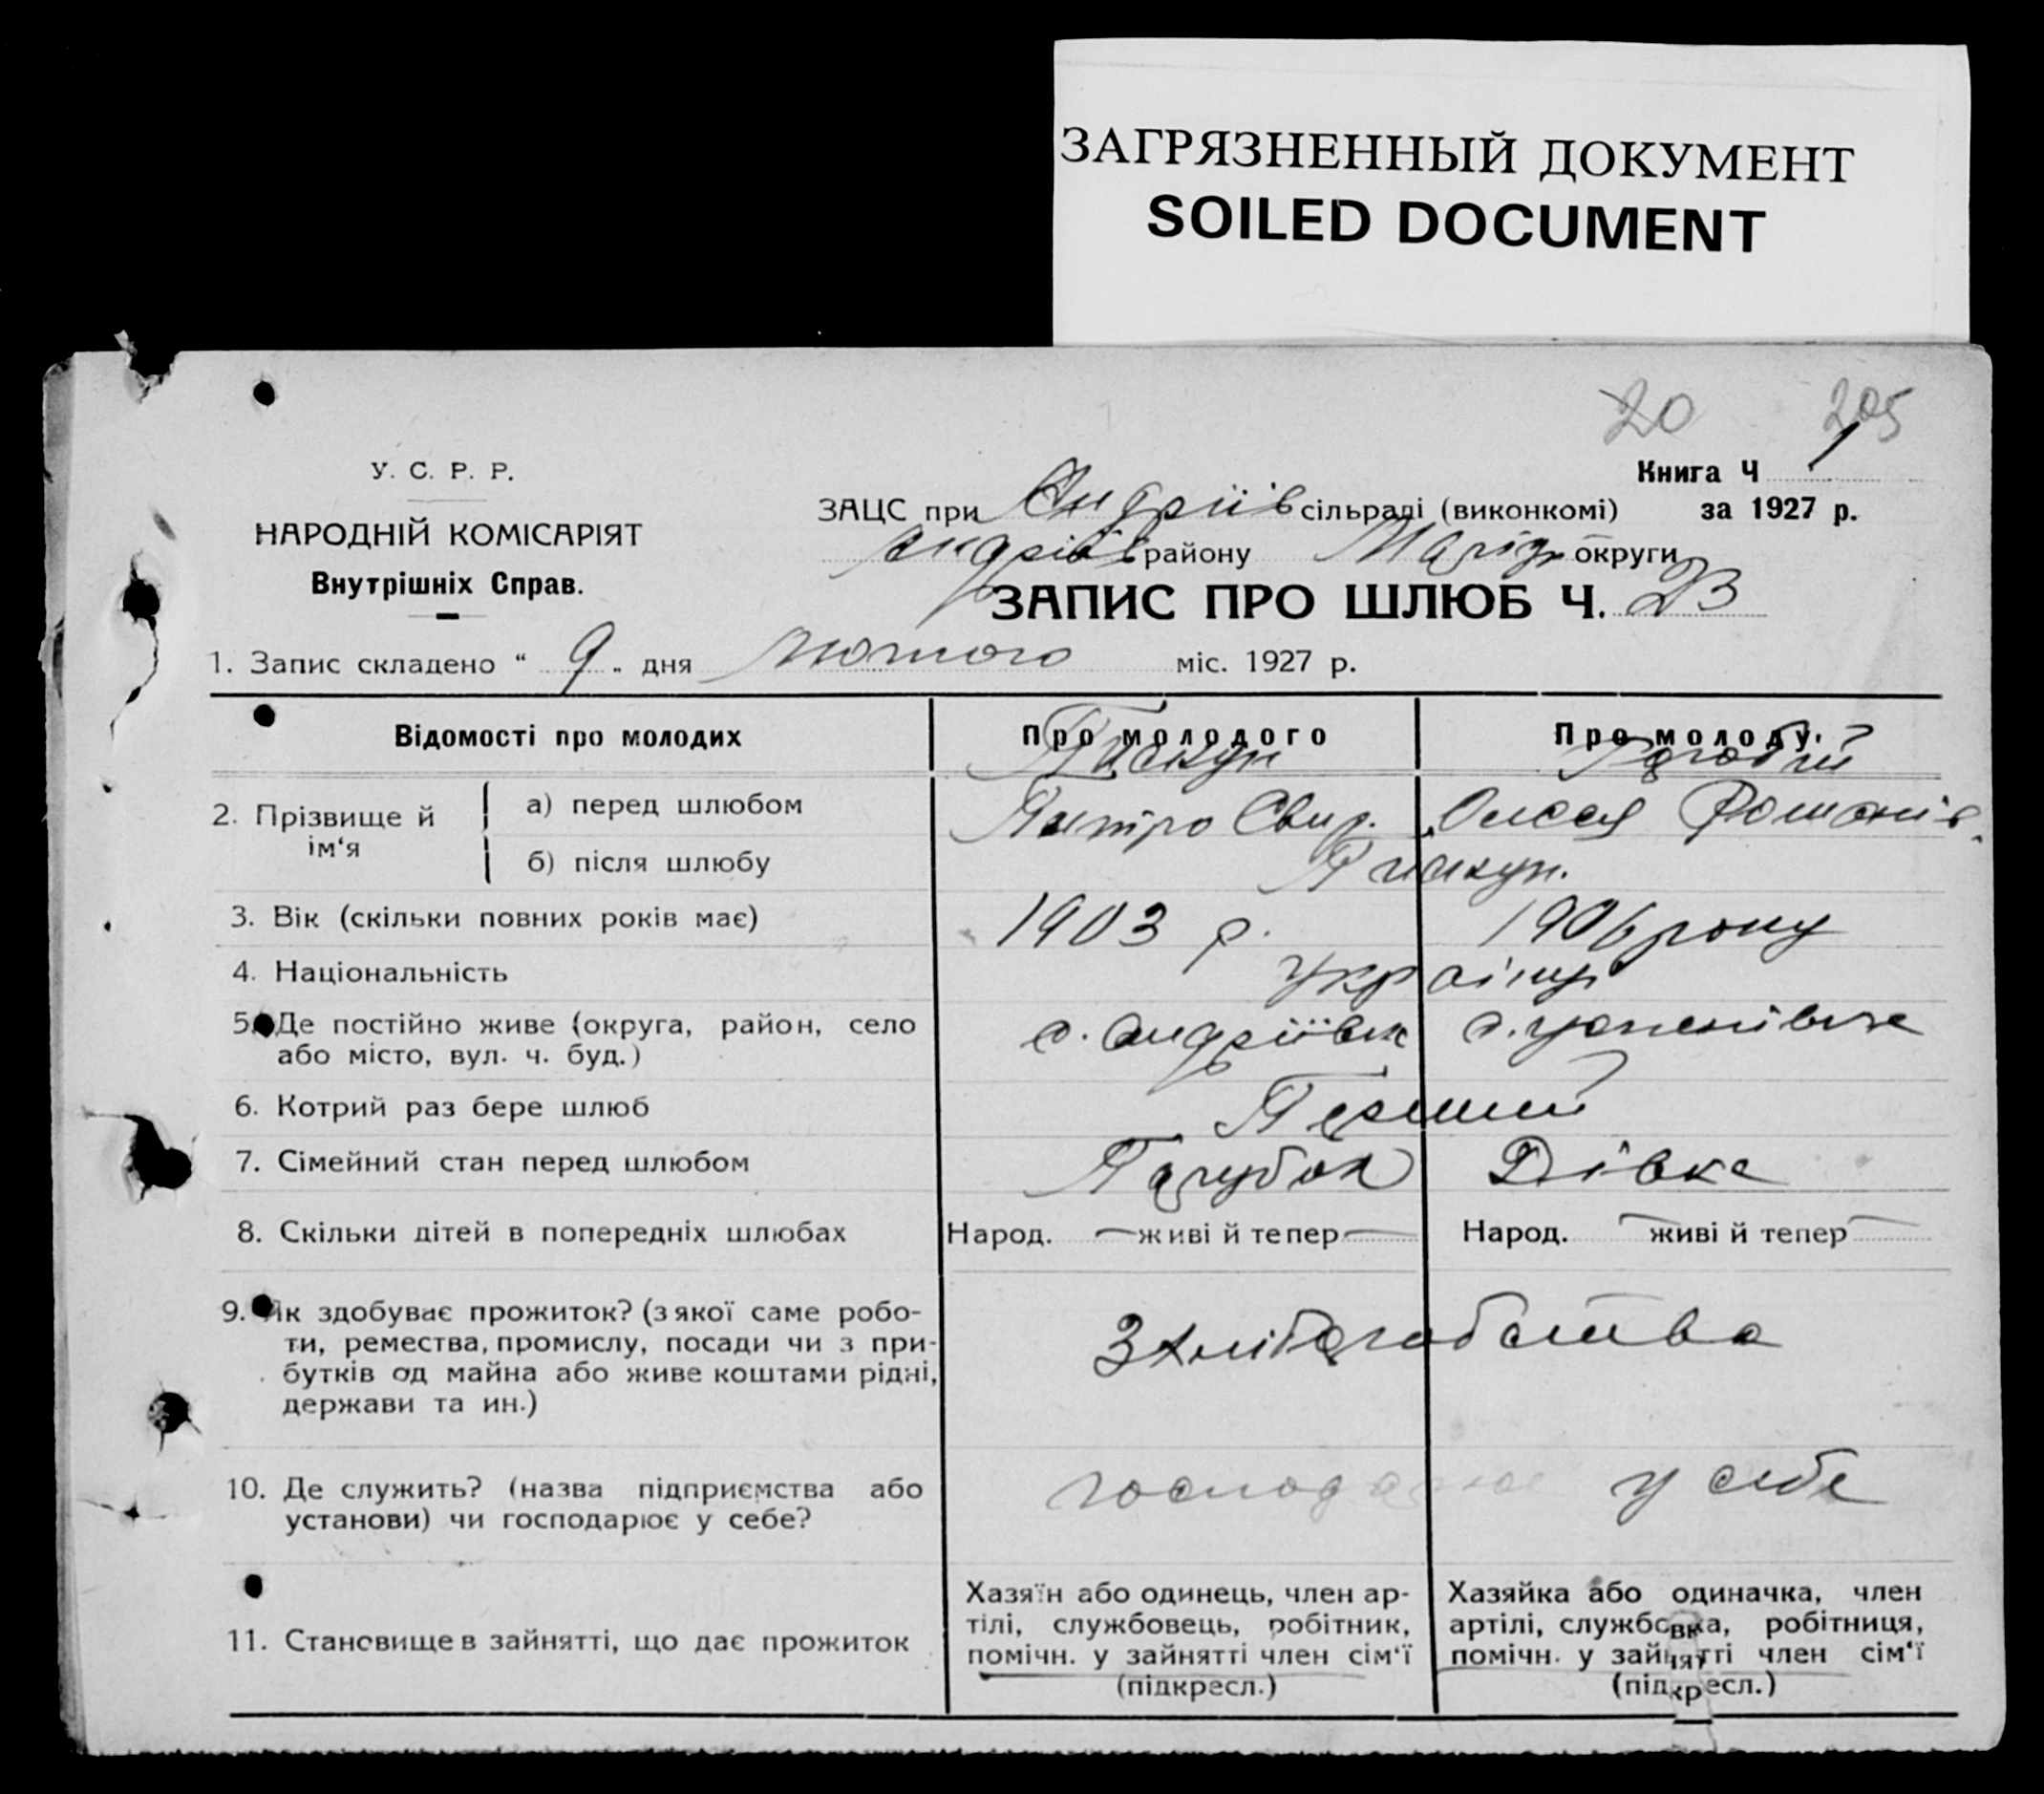 ЗАГРЯЗНЕННЫЙ ДОКУМЕНТ
SOILED DOCUMENT
20 205
У. С. Р. Р.
НАРОДНІЙ КОМІСАРІЯТ
Внутрішніх Справ.
Книга Ч 1
ЗАЦС при Андріїв сільраді (виконкомі) за 1927 р.
Андріїв району Маріуп округи
ЗАПИС ПРО ШЛЮБ Ч. 23
1. Запис складено “ 9 „ дня лютого міс. 1927 р.
Відомості про молодих
Про молодого
Про молоду.
2. Прізвище й ім‘я
а) перед шлюбом
Пискун
Петро Свир.
Олеся Романів.
б) після шлюбу
Пискун.
3. Вік (скільки повних років має)
1903 р.
1906 року
4. Національність
україн
5. Де постійно живе (округа, район, село
або місто, вул. ч. буд.)
с. Андріївк
6. Котрий раз бере шлюб
Перший
7. Сімейний стан перед шлюбом
Парубок
Дівка
8. Скільки дітей в попередніх шлюбах
Народ. — живі й тепер —
Народ. — живі й тепер —
9. Як здобуває прожиток? (з якої саме робо-
ти, ремества, промислу, посади чи з при-
бутків од майна або живе коштами рідні,
держави та ин.)
З хліборобства
10. Де служить? (назва підприємства або
установи) чи господарює у себе?
господарює у себе
11. Становище в зайнятті, що дає прожиток
Хазяїн або одинець, член ар-
тілі, службовець, робітник,
помічн. у зайнятті член сім‘ї
(підкресл.)
Хазяйка або одиначка, член
артілі, службовка, робітниця,
помічн. у зайнятті член сім‘ї
(підкресл.)